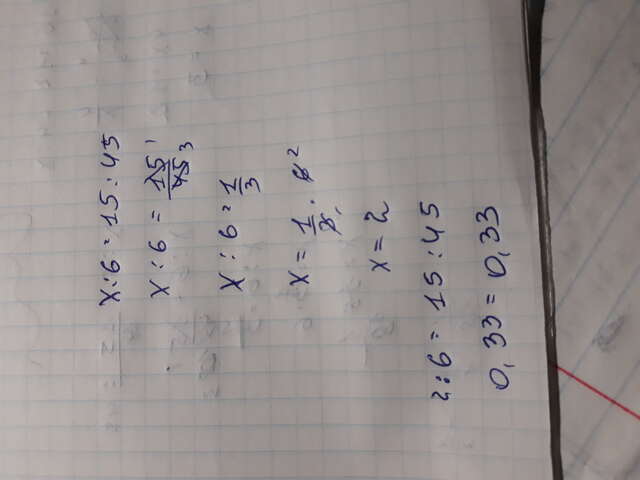 x:6=15:45
x:6=15/45 1 3
x:6=1/3
x=1/3·6 1 2
x=2
2:6=15:45
0,33=0,33